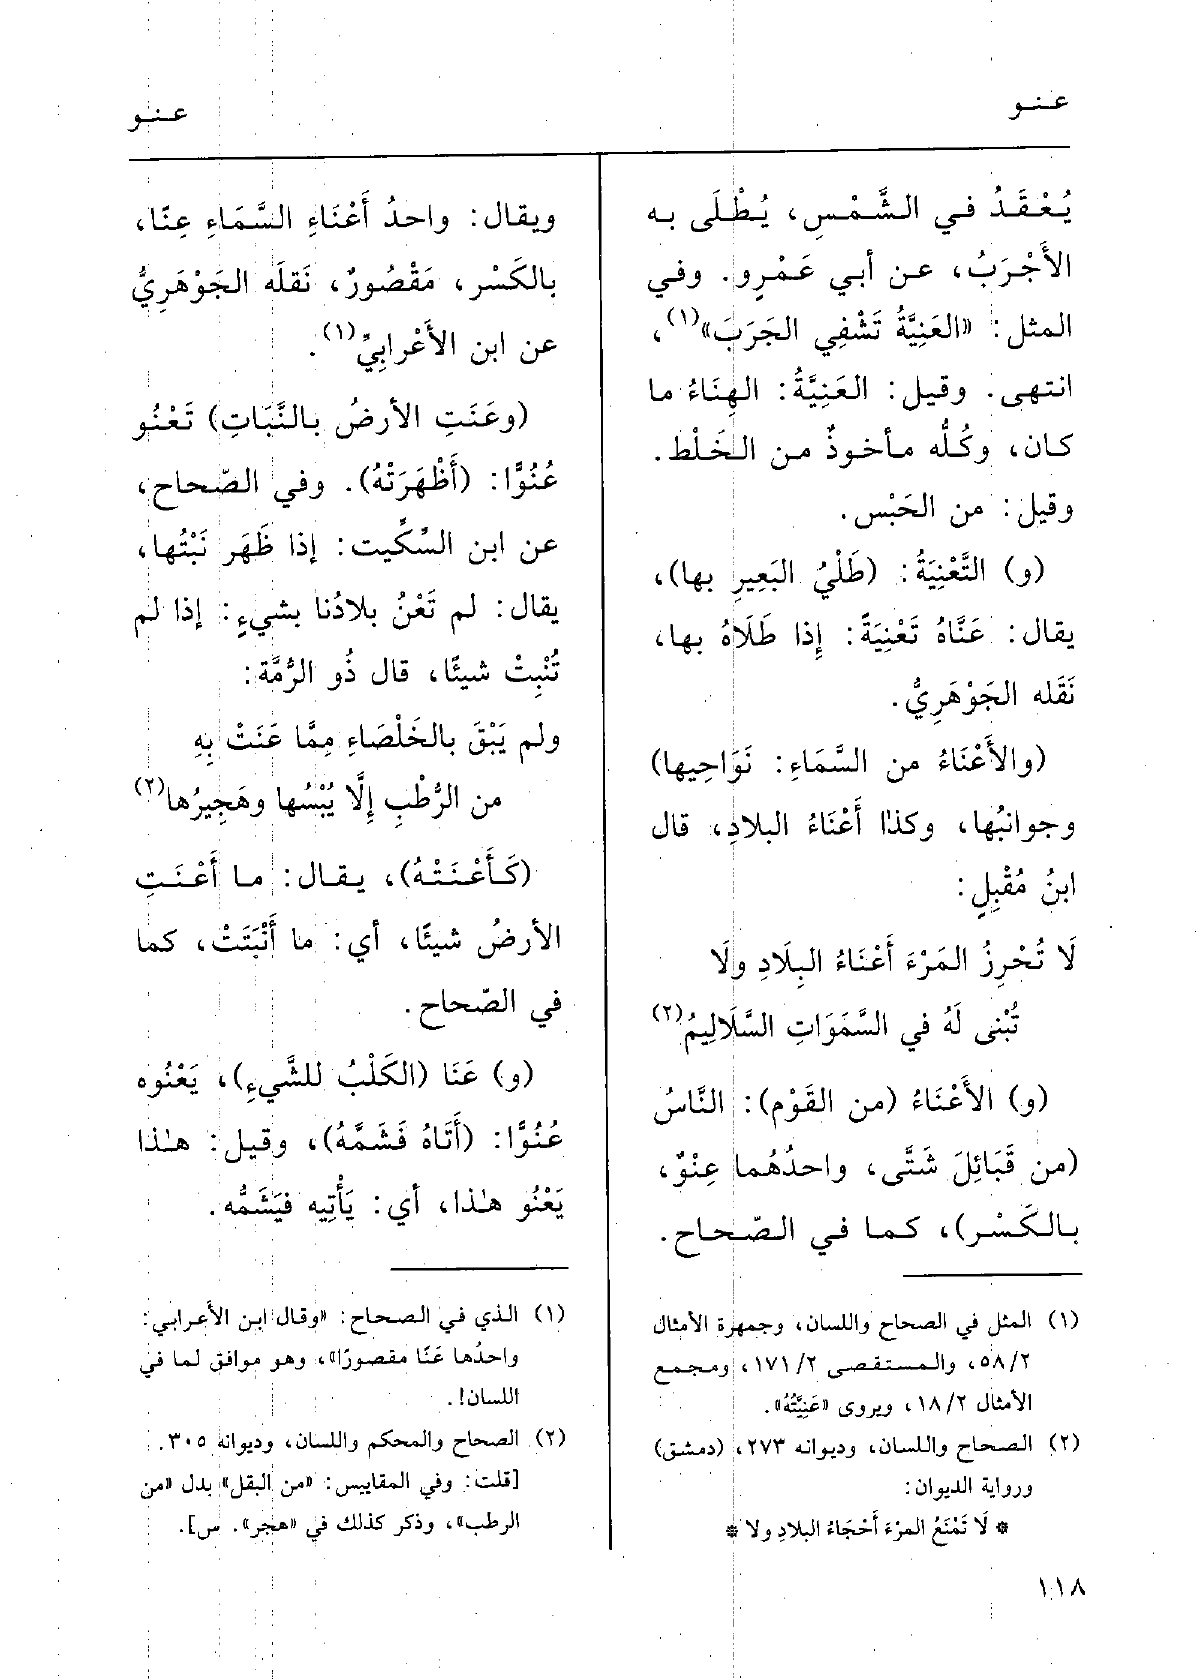 عنو
عنو
يُعْقَدُ في الشَّمْسِ، يُطْلَى به
الأَجْرَبُ، عن أبي عَمْرٍو. وفي
المثل: «العَنِيَّةُ تَشْفِي الجَرَبَ»(١)،
انتهى. وقيل: العَنِيَّةُ: الهِنَاءُ ما
كان، وكُلُّه مأخوذٌ من الخَلْط.
وقيل: من الحَبْس.
(و) التَّعْنِيَةُ: (طَلْيُ البَعِيرِ بها)،
يقال: عَنَّاهُ تَعْنِيَةً: إِذا طَلَاهُ بها،
نَقَله الجَوْهَرِيُّ.
(والأَعْنَاءُ من السَّمَاءِ: نَوَاحِيها)
وجوانبُها، وكذا أَعْنَاءُ البلادِ، قال
ابنُ مُقْبِلٍ:
لَا تُحْرِزُ المَرْءَ أَعْنَاءُ البِلَادِ ولَا
تُبْنى لَهُ في السَّمَوَاتِ السَّلَالِيمُ(٢)
(و) الأَعْنَاءُ (من القَوْم): النَّاسُ
(من قَبَائِلَ شَتَّى، واحدُهُما عِنْوٌ،
بالكَسْر)، كما في الصّحاح.
(١) المثل في الصحاح واللسان، وجمهرة الأمثال
٥٨/٢، والمستقصى ١٧١/٢، ومجمع
الأمثال ١٨/٢، ويروى «عَنِيَّتُهُ».
(٢) الصحاح واللسان، وديوانه ٢٧٣، (دمشق)
ورواية الديوان:
* لَا تَمْنَعُ المرْءَ أَحْجَاءُ البلادِ ولا *
ويقال: واحدُ أَعْنَاءِ السَّمَاءِ عِنًا،
بالكَسْر، مَقْصُورٌ، نَقلَه الجَوْهَرِيُّ
عن ابن الأَعْرابيِّ(١).
(وعَنَتِ الأرضُ بالنَّبَاتِ) تَعْنُو
عُنُوًّا: (أَظْهَرَتْهُ). وفي الصّحاح،
عن ابن السِّكِّيت: إذا ظَهَر نَبْتُها،
يقال: لم تَعْنُ بلادُنا بشيءٍ: إذا لم
تُنْبِتْ شيئًا، قال ذُو الرُّمَّة:
ولم يَبْقَ بالخَلْصَاءِ مِمَّا عَنَتْ بِهِ
من الرُّطْبِ إِلَّا يُبْسُها وهَجِيرُها(٢)
(كَأَعْنَتْهُ)، يقال: ما أَعْنَتِ
الأرضُ شيئًا، أي: ما أَنْبَتَتْ، كما
في الصّحاح.
(و) عَنَا (الكَلْبُ للشَّيءِ)، يَعْنُوه
عُنُوًّا: (أَتَاهُ فَشَمَّهُ)، وقيل: هٰذا
يَعْنُو هٰذا، أي: يَأْتِيه فيَشَمُّه.
(١) الذي في الصحاح: «وقال ابن الأعرابي:
واحدُها عَنًا مقصورًا»، وهو موافق لما في
اللسان!.
(٢) الصحاح والمحكم واللسان، وديوانه ٣٠٥.
[قلت: وفي المقاييس: «من البقل» بدل «من
الرطب»، وذكر كذلك في «هجر». س].
١١٨